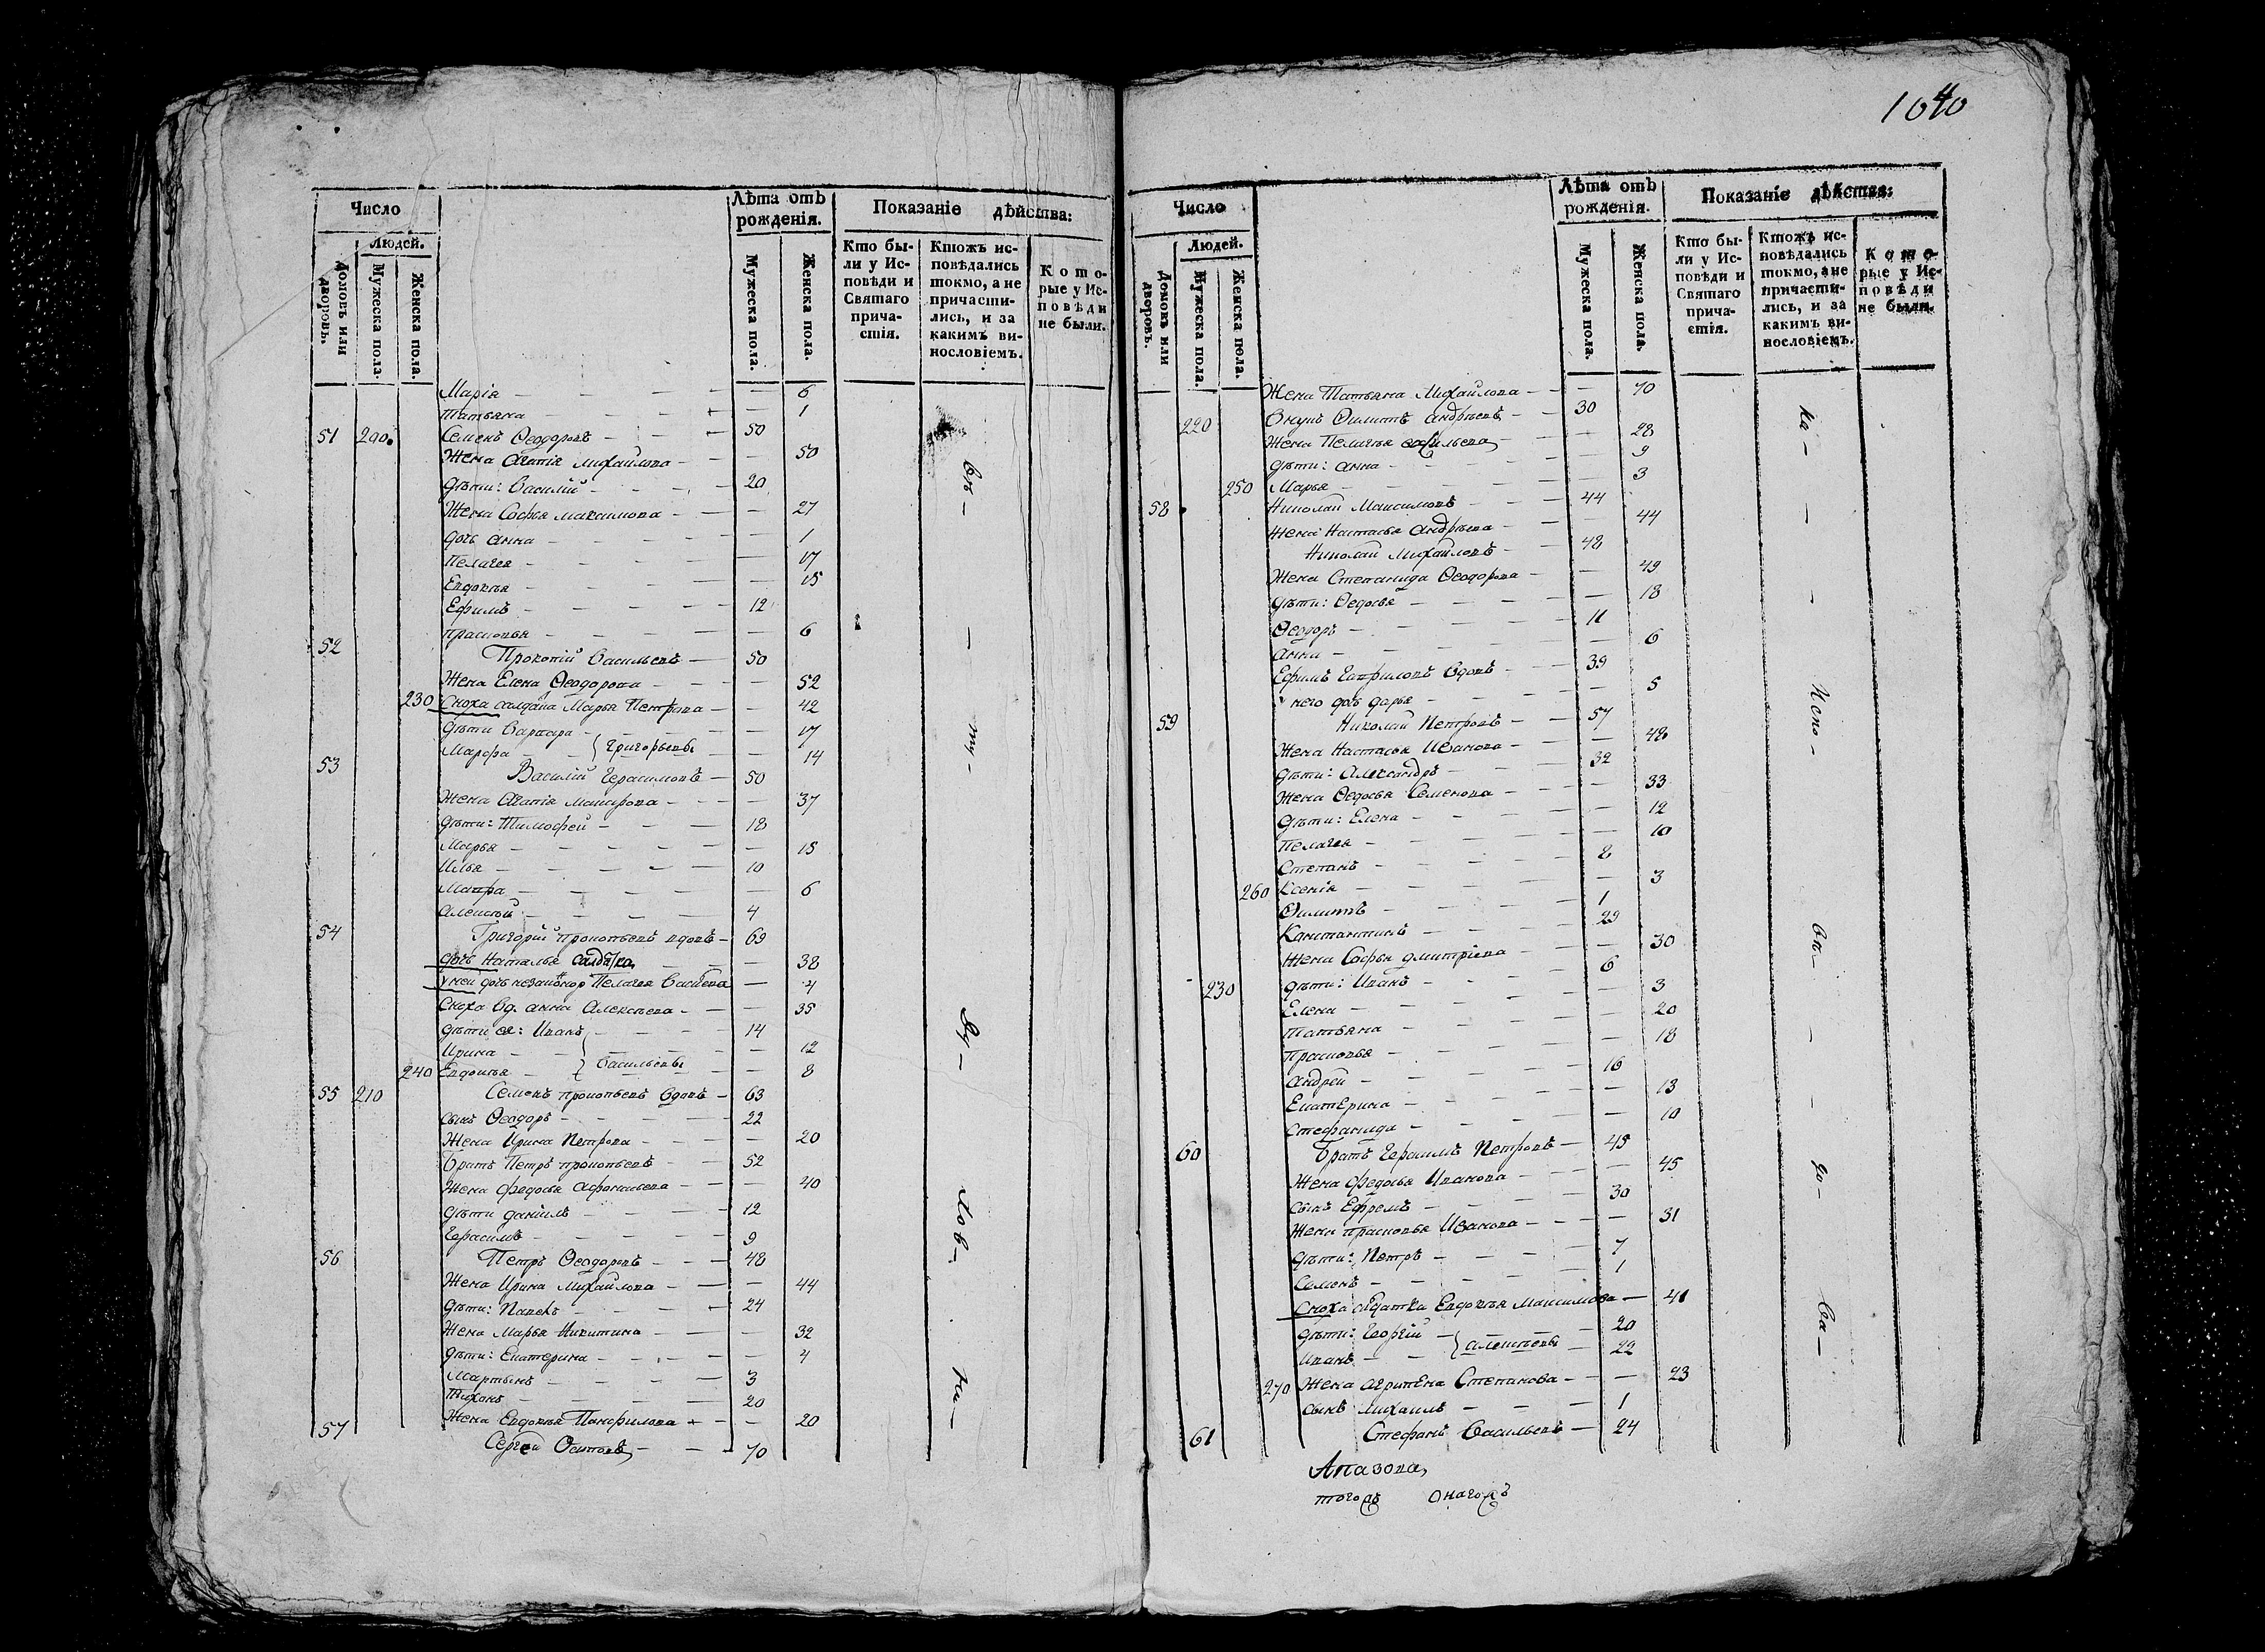 1040
Число
Людей.
Домовъ или дворовъ.
Мужеска пола.
Женска пола.
Лѣта отъ рожденія.
Мужеска пола.
Женска пола.
Показаніе дѣйства:
Кто бы-
ли у Ис-
повѣди и
Святаго
прича-
стія.
Ктожъ ис-
повѣдались
токмо, а не
причасти-
лись, и за
какимъ ви-
нословіемъ.
Кото-
рые у Ис-
повѣди
не были.
Марія — 6
Татьяна — 1
51 200. Семенъ Ѳеодоровъ — 50
Жена Агапія Михайлова — 50
дѣти: Василій — 20
Жена Софья Максимова — 27
дочь Анна — 1
Пелагея — 17
Евдокья — 15
Ефимъ — 12
Прасковья — 6
52 Прокопій Васильевъ — 50
Жена Елена Ѳеодорова — 52
230 Сноха Марья Петрова — 42
дѣти Варвара — 17
Марфа } Григорьевы — 14
53 Василій Герасимовъ — 50
Жена Агапія — 37
дѣти: Тимофей — 18
Марья — 15
Илья — 10
Мавра — 6
Алексѣй — 4
54 Григорій Прокопьевъ вдовъ — 69
дочь Наталья — 38
у ней дочь Пелагея — 4
Сноха вд. Анна Алексѣева — 35
дѣти ея: Иванъ — 14
Ирина — 12
240 Евдокья } Васильевы — 8
55 210 Семенъ Прокопьевъ вдовъ — 63
сынъ Ѳеодоръ — 22
Жена Ирина Петрова — 20
Братъ Петръ Прокопьевъ — 52
Жена Федосья — 40
дѣти Даніилъ — 12
Герасимъ — 9
56 Петръ Ѳеодоровъ — 48
Жена Ирина Михайлова — 44
дѣти: Павелъ — 24
Жена Марья Никитина — 32
дѣти: Екатерина — 4
Мартынъ — 3
Тихонъ — 20
Жена Евдокья Панфилова — 20
57 Сергей — 70
Число
Людей.
Домовъ или дворовъ.
Мужеска пола.
Женска пола.
Лѣта отъ рожденія.
Мужеска пола.
Женска пола.
Показаніе дѣйства:
Кто бы-
ли у Ис-
повѣди и
Святаго
прича-
стія.
Ктожъ ис-
повѣдались
токмо, а не
причасти-
лись, и за
какимъ ви-
нословіемъ.
Кото-
рые у Ис-
повѣди
не были.
Жена Татьяна Михайлова — 70
220 Внукъ Филиппъ Андрѣевъ — 30
Жена Пелагея — 28
дѣти: Анна — 9
250 Марья — 3
58 Николай Максимовъ — 44
Жена Настасья Андрѣева — 44
Николай Михайловъ — 48
Жена Степанида Ѳеодорова — 49
дѣти: Ѳедосья — 18
Ѳеодоръ — 11
Анна — 6
Ефимъ Гавриловъ вдовъ — 39
у него дочь Дарья — 5
59 Николай Петровъ — 57
Жена Настасья Иванова — 48
дѣти: Александръ — 32
Жена Ѳедосья Семенова — 33
дѣти: Елена — 12
Пелагея — 10
Степанъ — 8
260 Ксенія — 3
Филиппъ — 1
Канстантинъ — 29
Жена Софья Дмитріева — 30
230 дѣти: Иванъ — 6
Елена — 3
Татьяна — 20
Прасковья — 18
Андрей — 16
Екатерина — 13
Стефанида — 10
60 Братъ Герасимъ Петровъ — 45
Жена Федосья Иванова — 45
сынъ Ефремъ — 30
Жена Прасковья Иванова — 31
дѣти: Петръ — 7
Семенъ — 1
Сноха Евдокья Максимова — 41
дѣти: Георгій — 20
Иванъ } Алексѣевы — 22
270 Жена Агрипена Степанова — 23
сынъ Михаилъ — 1
61 Стефанъ Васильевъ — 24